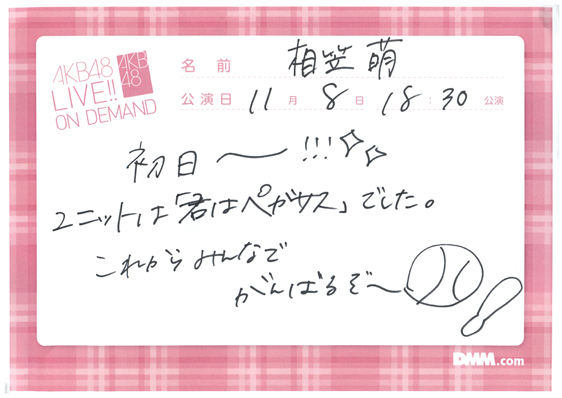 AKB48
LIVE!!
ON DEMAND
AKB
48
名前 相笠 萌
公演日 11月8日 18:30 公演
初日〜!!!
ユニットは「君はペガサス」でした。
これからみんなで
がんばるぞ〜
DMM.com